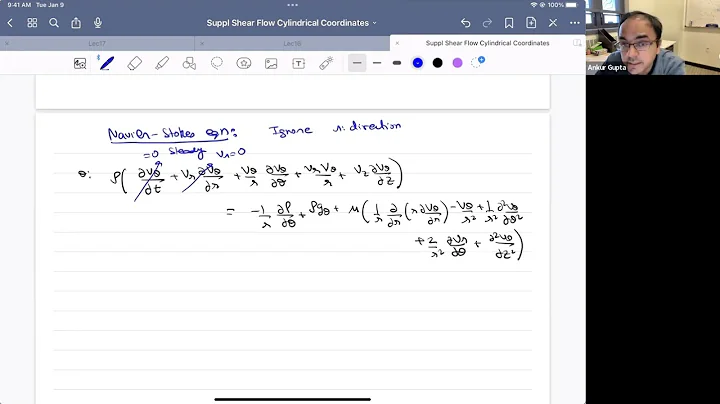 9:41 AM Tue Jan 9
100%
Suppl Shear Flow Cylindrical Coordinates
Lec17
Lec18
Suppl Shear Flow Cylindrical Coordinates
Ankur Gupta
Navier-Stokes eqn: Ignore r: direction
=0 Steady vr=0
θ: ρ( ∂vθ/∂t + vr ∂vθ/∂r + vθ/r ∂vθ/∂θ + vr vθ/r + vz ∂vθ/∂z )
= -1/r ∂P/∂θ + ρgθ + μ( 1/r ∂/∂r (r ∂vθ/∂r) - vθ/r² + 1/r² ∂²vθ/∂θ²
+ 2/r² ∂vr/∂θ + ∂²vθ/∂z² )